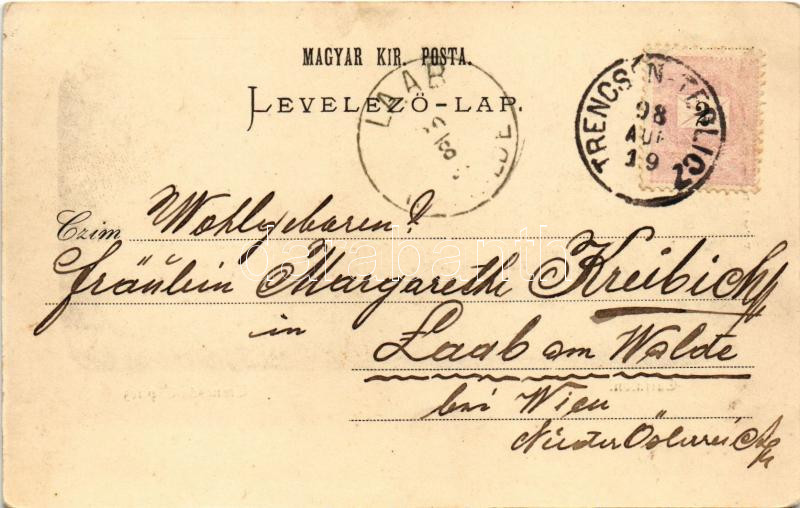 MAGYAR KIR. POSTA.
LEVELEZŐ-LAP.
LAAB
TRENCSÉN-TEPLICZ
98
AUG
19
Czim Wohlgeboren!
Fräulein Margarethe Kreibich
in
Laab am Walde
bei Wien
Nieder Österreich
darabanth